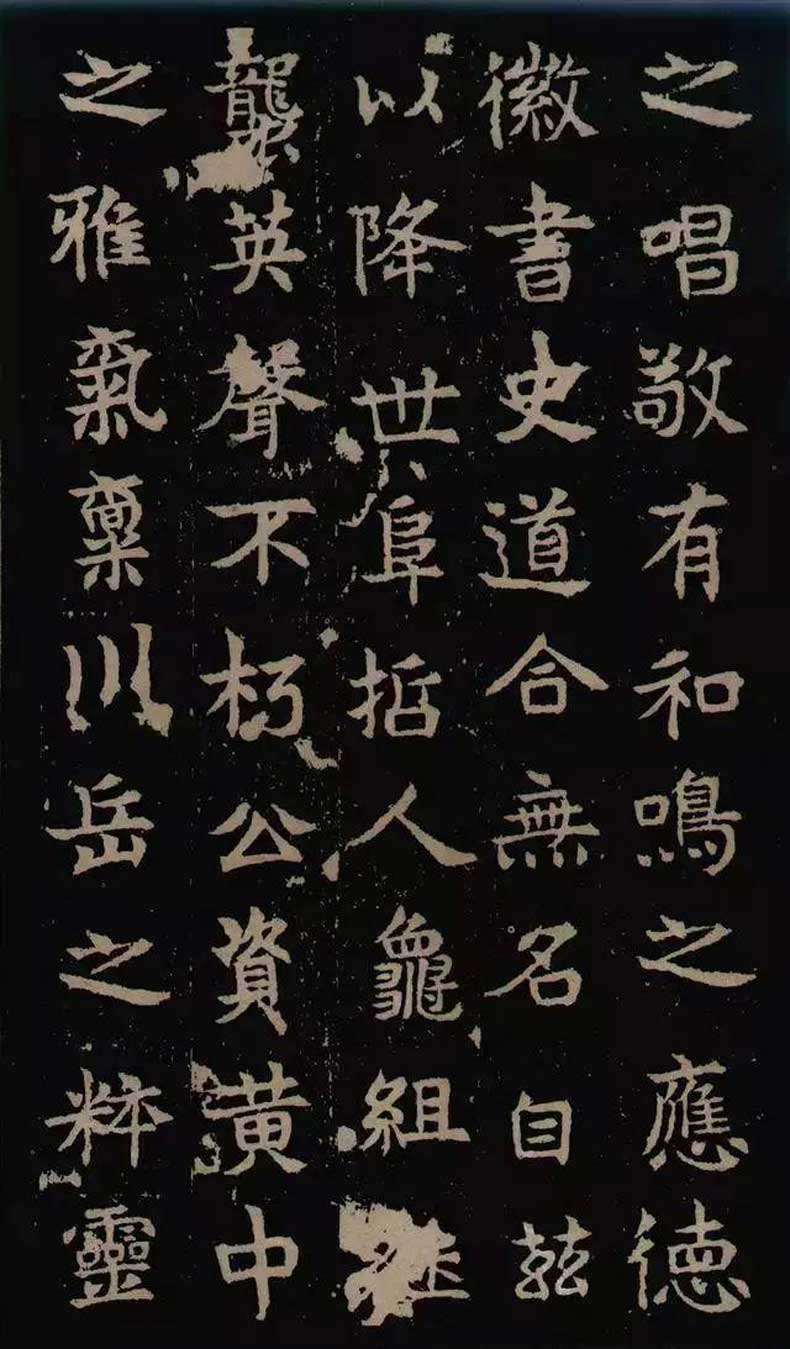 之唱敬有和鳴之應德
徽書史道合無名自玆
以降世阜哲人龜組
襲英聲不朽公資黃中
之雅氣稟川岳之粹靈